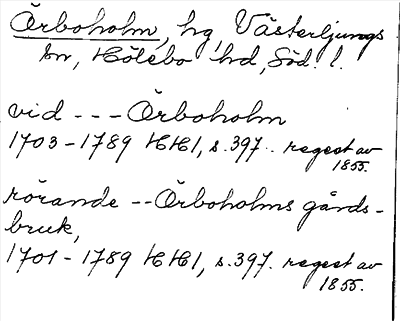 Örboholm, hg, Västerljungs
sn, Hölebo hd, Söd. l.
vid --- Örboholm
1703-1789 HH1, s. 397. regest av
1855.
rörande -- Örboholms gårds-
bruk,
1701-1789 HH1, s. 397. regest av
1855.